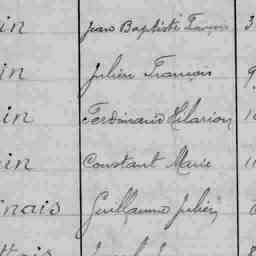 in Jean Baptiste François 3
in Julien François 9
in Ferdinand Hilarion 1
in Constant Marie 11
nais Guillaume Julien